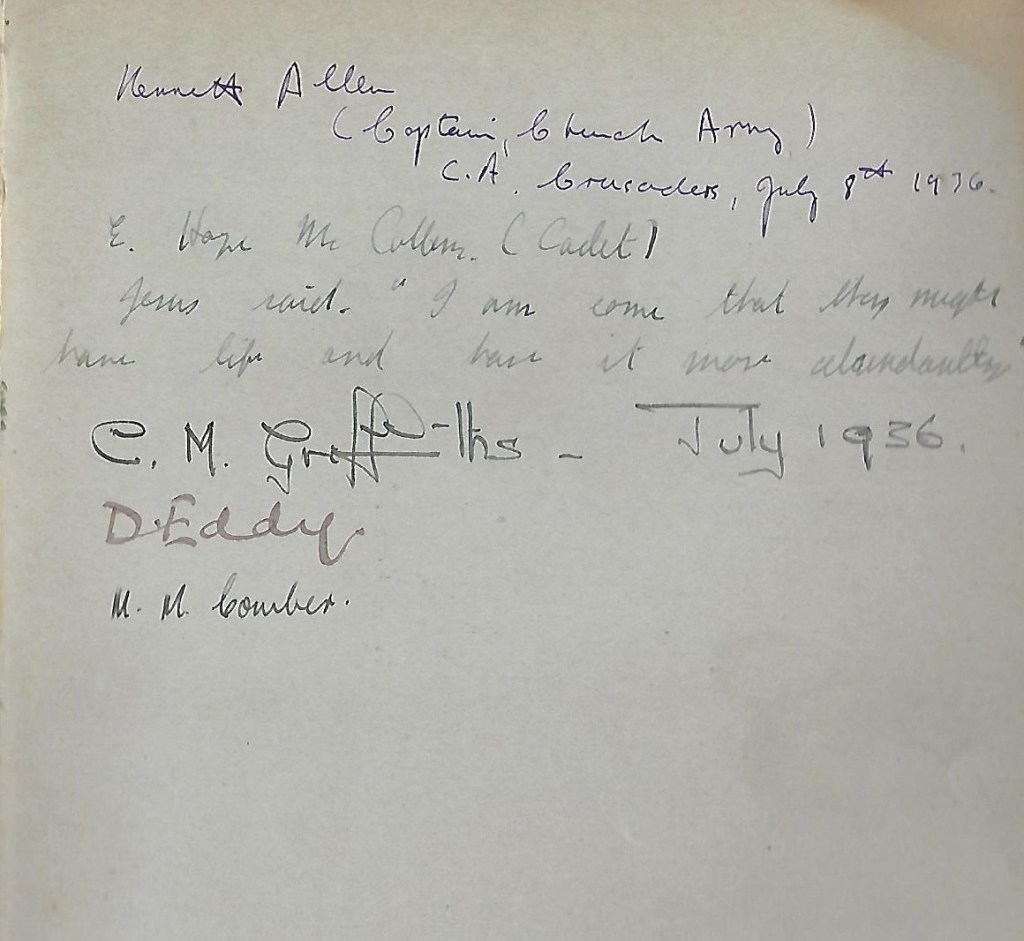 Kenneth Allen
(Captain, Church Army)
C.A. Crusaders, July 8th 1936.
E. Hope Mc (Cadet)
Jesus said. "I am come that they might
have life and have it more abundantly"
C. M. Griffiths - July 1936.
D. Eddy.
M. M. Comber.